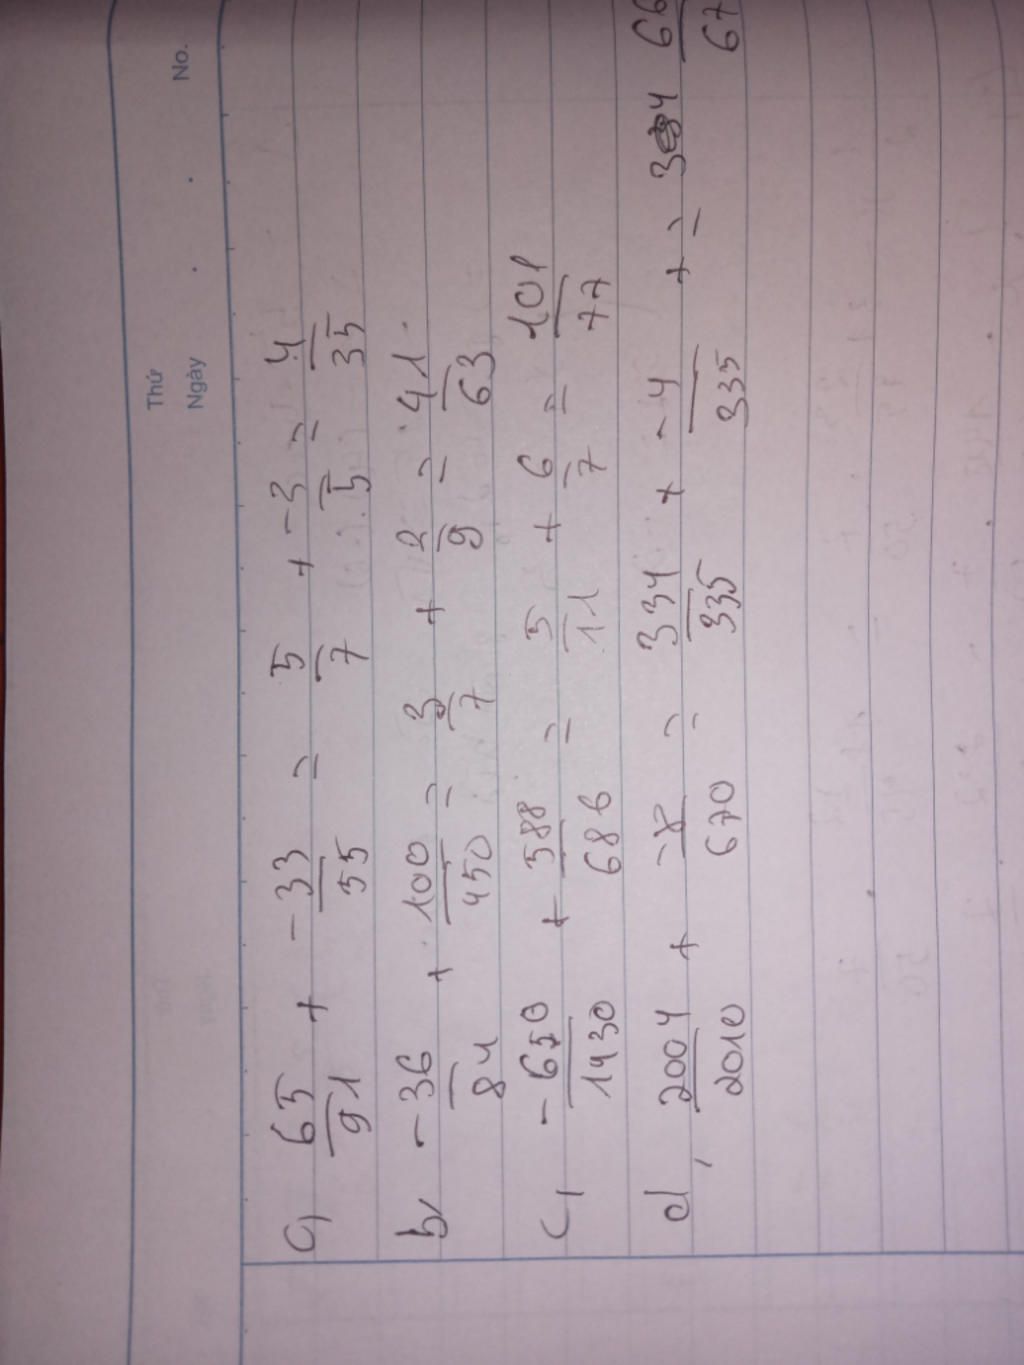 Thứ
Ngày . . No.
a, 65/91 + -33/55 = 5/7 + -3/5 = 4/35
b, -36/84 + 100/450 = 3/7 + 2/9 = 41/63
c, -650/1430 + 588/686 = 5/11 + 6/7 = 101/77
d, 2004/2010 + -8/670 = 334/335 + -4/335 + = 334 66/67